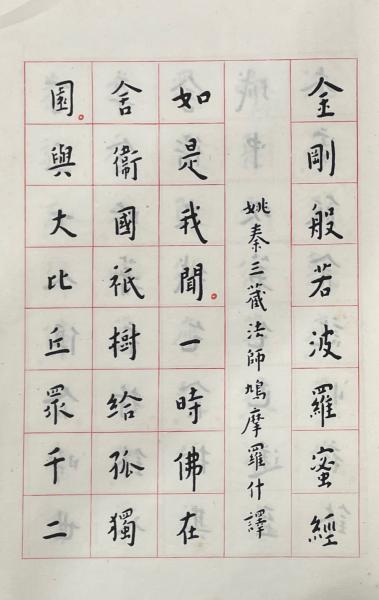 金剛般若波羅蜜經
姚秦三藏法師鳩摩羅什譯
如是我聞。一時佛在
舍衛國祇樹給孤獨
園。與大比丘眾千二